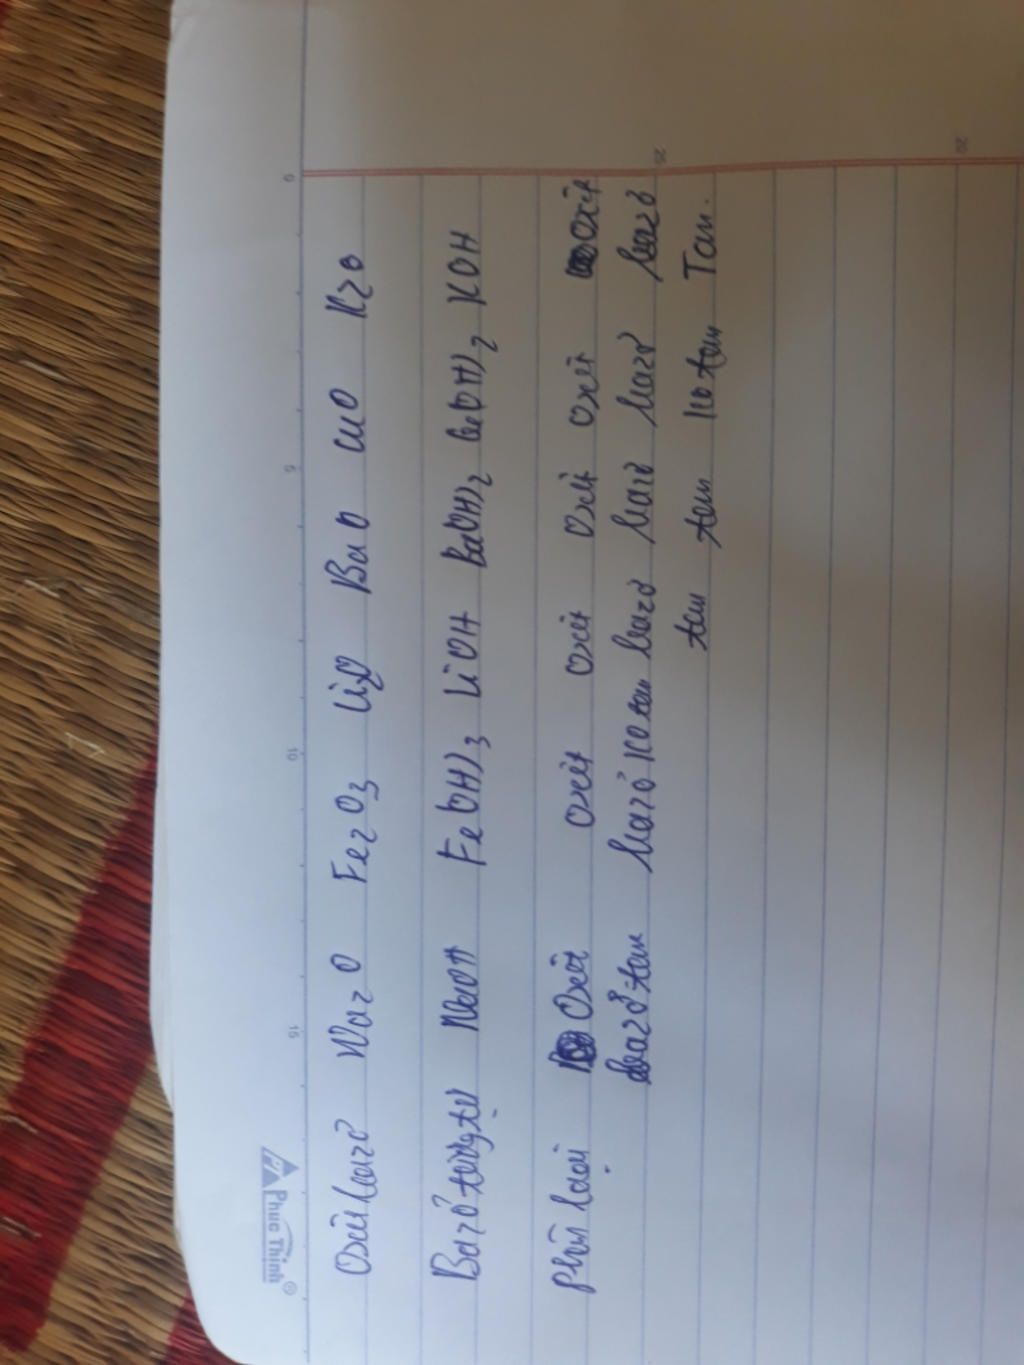 Phuc Thinh
0 5 10 15
20 25
Oxit bazơ Na2O Fe2O3 Li2O BaO CuO K2O
Bazơ tương tự NaOH Fe(OH)3 LiOH Ba(OH)2 Cu(OH)2 KOH
phân loại Oxit oxit oxit Oxit oxit oxit
bazơ tan bazơ ko tan bazơ bazơ bazơ bazơ
tan tan ko tan Tan.